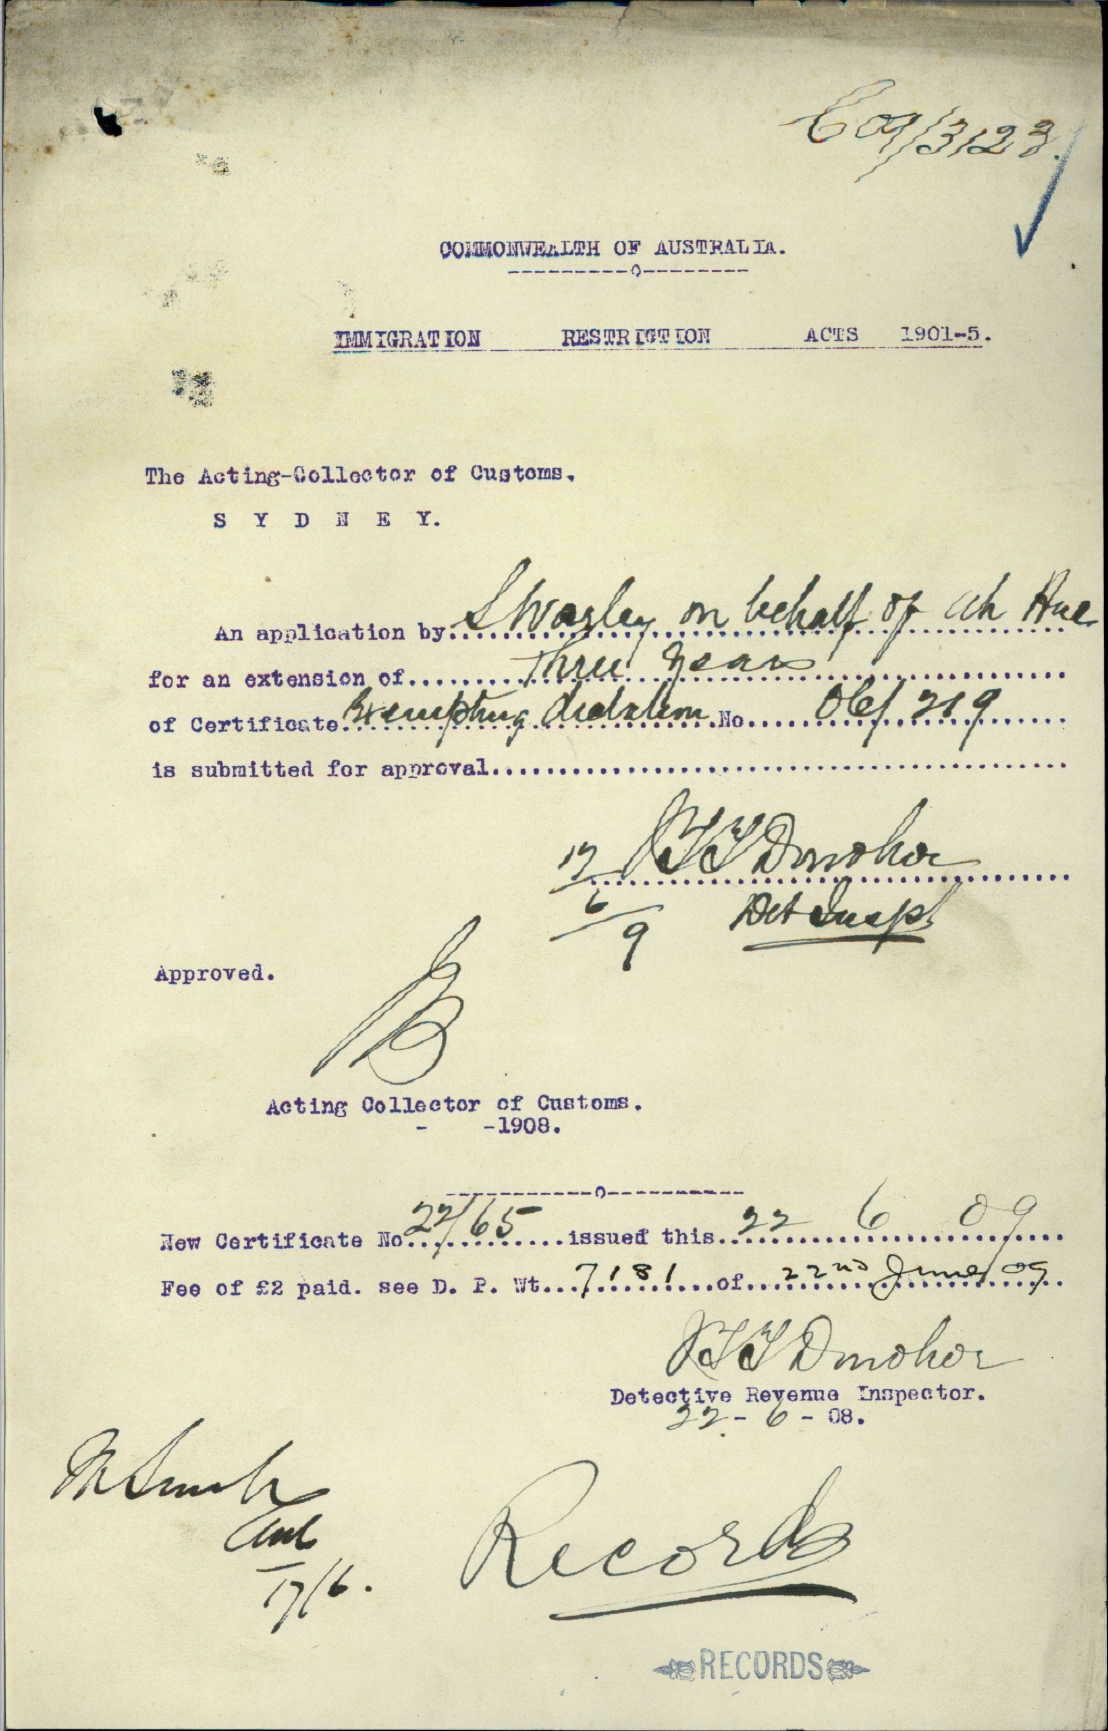 C09/3123.
COMMONWEALTH OF AUSTRALIA.
----------o---------
IMMIGRATION RESTRICTION ACTS 1901-5.
The Acting-Collector of Customs.
S Y D N E Y.
An application by S Wazley on behalf of Ah Hue
for an extension of Three Years
of Certificate Exempting dictation No 06/219
is submitted for approval
17 Donohoe
6
9 Det Inspr
Approved.
Acting Collector of Customs.
- -1908.
-----------o-----------
New Certificate No 22/65 issued this 22 6 09
Fee of £2 paid. see D. P. Wt. 7181 of 22nd June 09
Donohoe
Detective Revenue Inspector.
22 - 6 - 08.
17/6.
Records
RECORDS